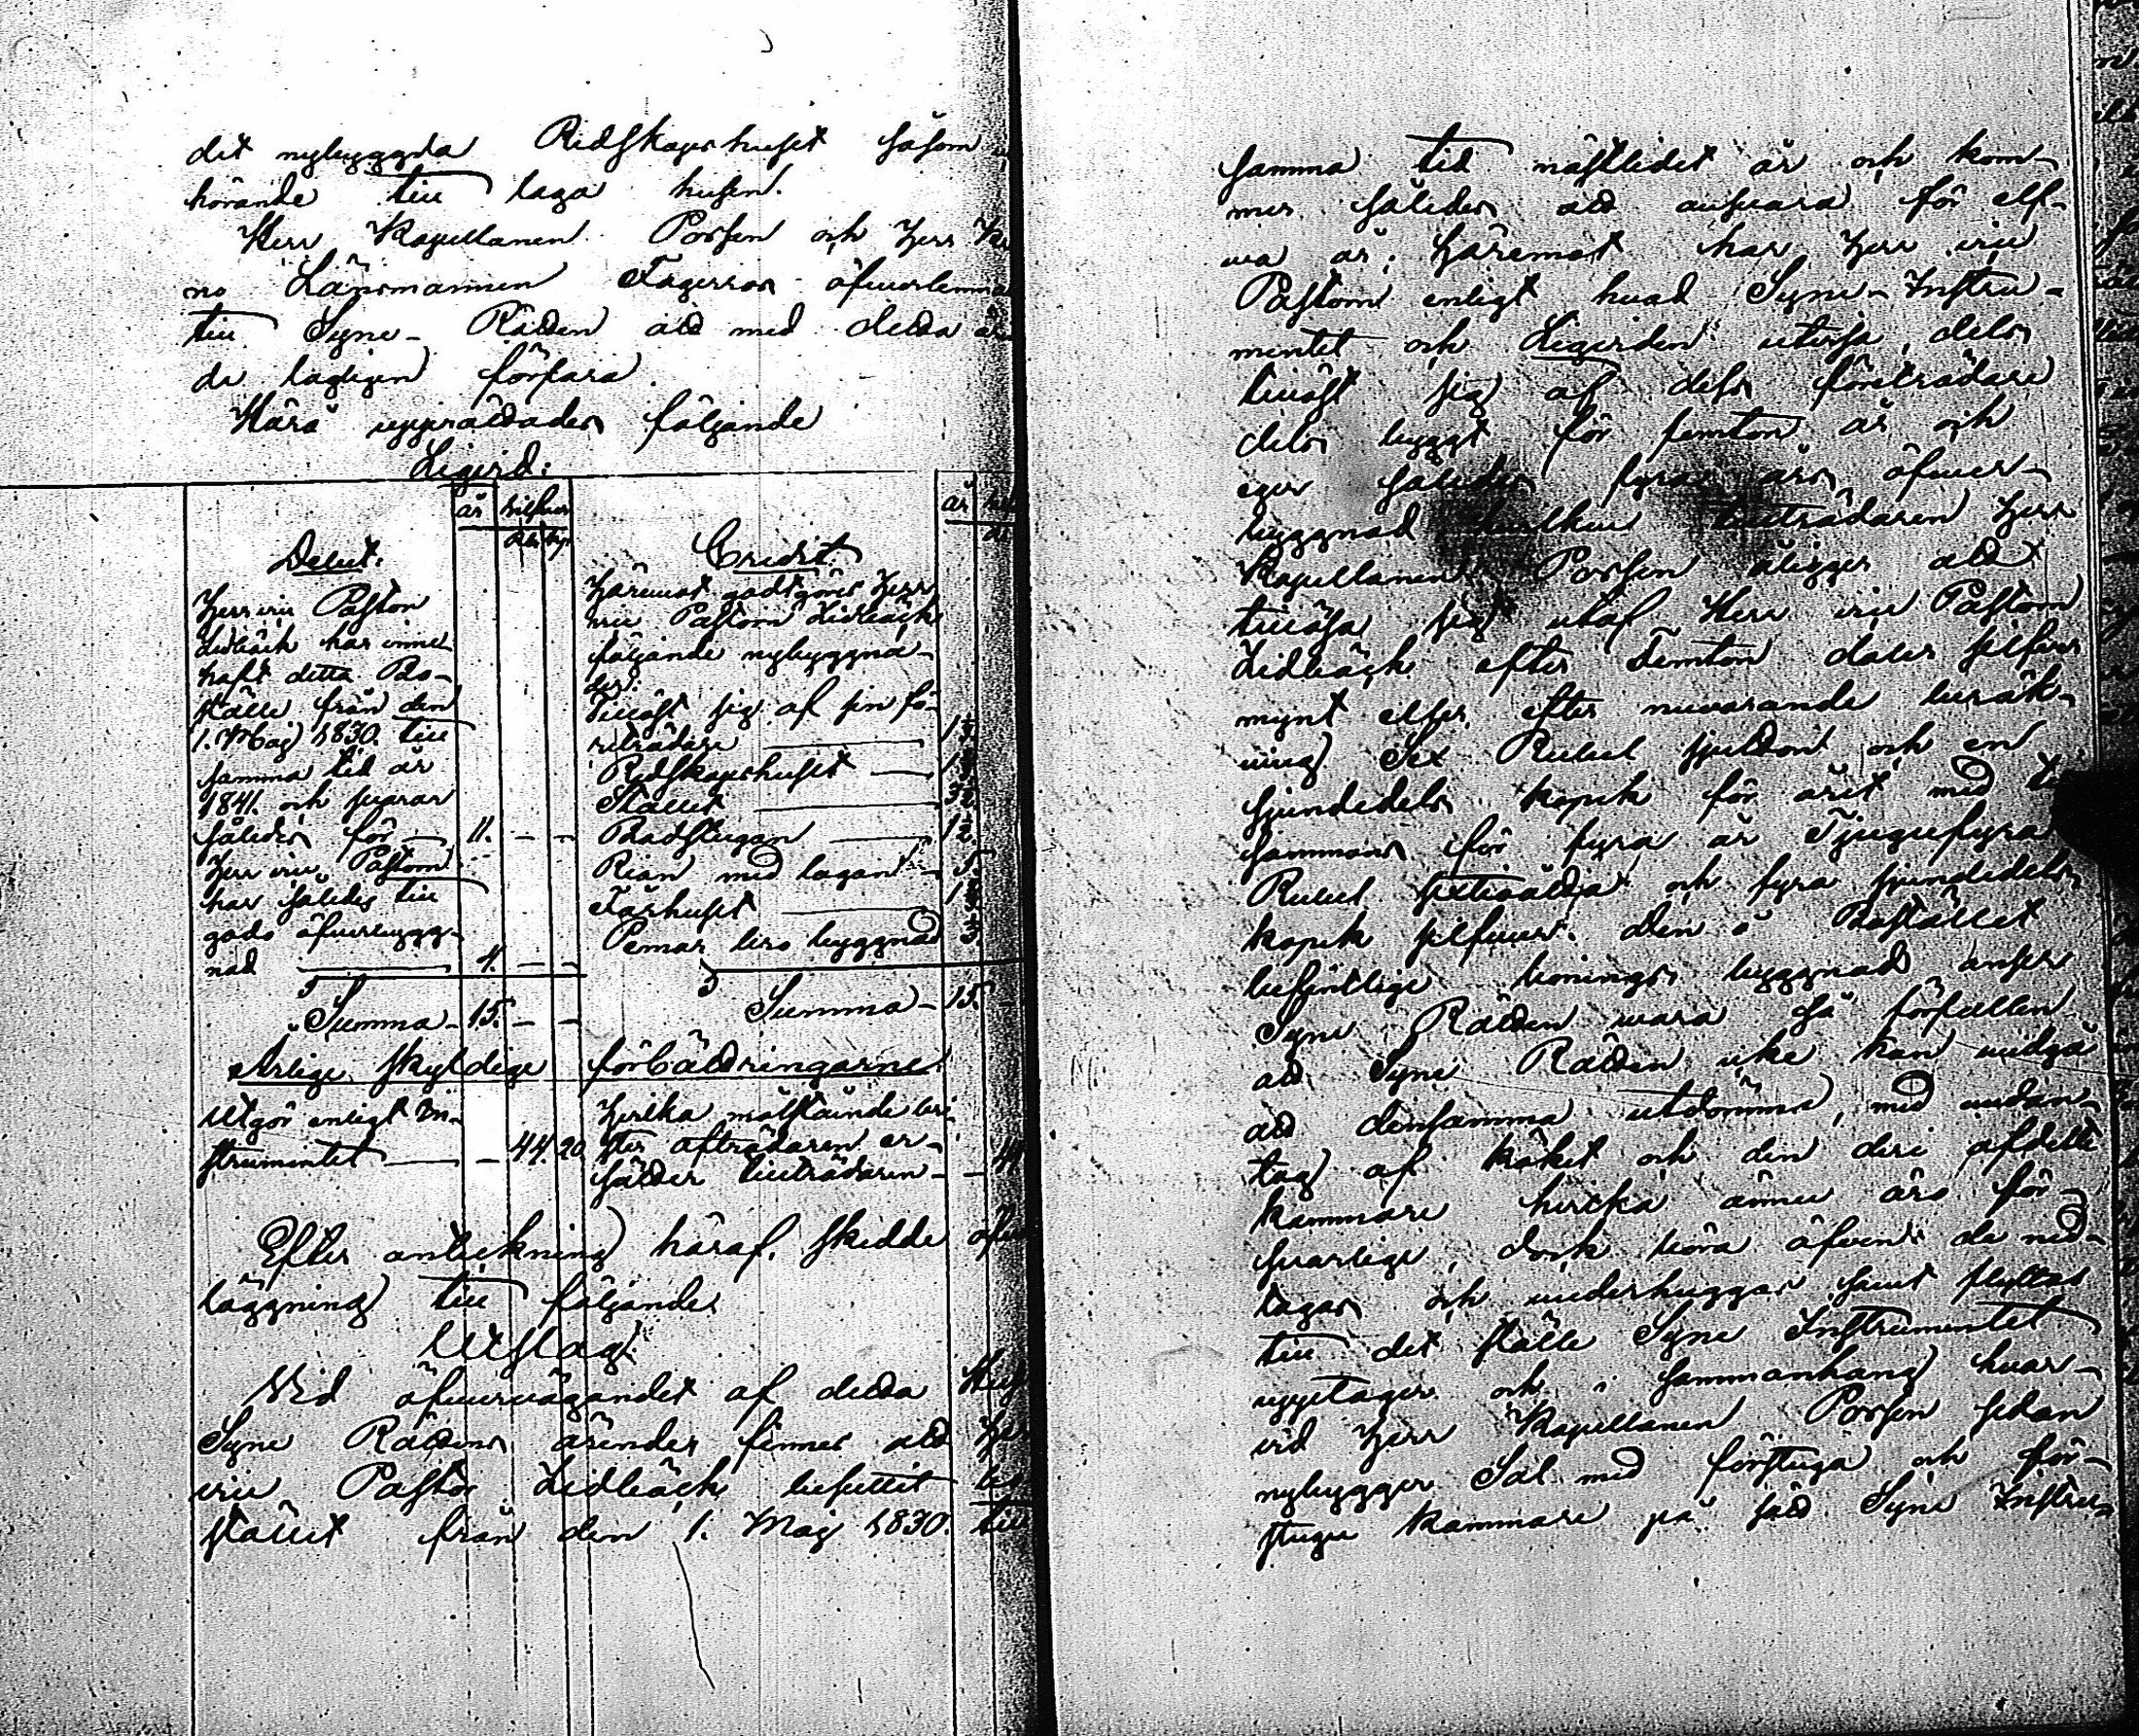 det nybyggda Redskapshuset såsom
hörande till laga husen.
Herr Kapellanen Porsen och Herr Kro
no Länsmannen Fagerroos öfverlemna
till Syne-Rätten att med detta
de lagligen förfara.
Härå upprättades följande
Ligerd:
år silfver
Rub. kop.
Debet:
Herr vice Pastorn
Lidbäck har inne-
haft detta Bo-
ställe från den
1. Maij 1830. till
samma tid år
1841. och svarar
således för — 11. — —
Herr vice Pastorn
har således till
godo öfverbygg-
nad — 4. — —
Summa — 15. — —
år
Credit:
Häremot godtgöres Herr
vice Pastorn Lidbäck
följande nybyggna-
der:
Tillöst sig af sin fö-
reträdare —
Redskapshuset —
Stallet —
Badstugan — 1½.
Rian med logan — 5.
Fårhuset —
Pemar lers byggnad 3.
Summa — 15.
Årlige skyldige förbättringarne
Utgör enligt In-
strumentet — — 44. 20.
Hvilka målstånde bri-
ster afträdaren er-
sätter tillträdaren — — 44
Efter anteckning häraf, skedde öfver
läggning till följande
Utslag:
Vid öfvervägandet af detta Hus
Syne Rättens ärende finner att Herr
vice Pastor Lidbäck besuttit bo
stället från den 1. Maij 1830. till
samma tid nästledet år och kom-
mer således att ansvara för elf-
va år; häremot har Herr vice
Pastorn enligt hvad Syne-Instru-
mentet och Ligerden utvisa, dels
tillöst sig af dess företrädare
dels byggt för femton år och
eger således fyra års öfver-
byggnad hvilken tillträdaren Herr
Kapellanen Porsen åligger att
tillösa sig utaf Herr vice Pastorn
Lidbäck efter Femton daler silfver
mynt eller efter nuvarande beräk-
ning Sex Rubel sjutton och en
sjundedels kopek för året med till
sammans för fyra år Tjugufyra
Rubel sextioåtta och fyra sjundedels
kopek silfver. Den å Bostället
befintlige bonings byggnad anser
Syne Rätten vara så förfallen
att Syne Rätten icke kan undgå
att densamma utdömma, med undan-
tag af köket och den deri afdelte
kammare hvilka ännu äro för-
svarlige, dock böra äfven de ned-
tagas och underhuggas samt flyttas
till det ställe Syne Instrumentet
upptager och i sammanhang hvar-
vid Herr Kapellanen Porsen sedan
nybygger Sal med förstuga och för-
stugu kammare på sätt Syne Instru-